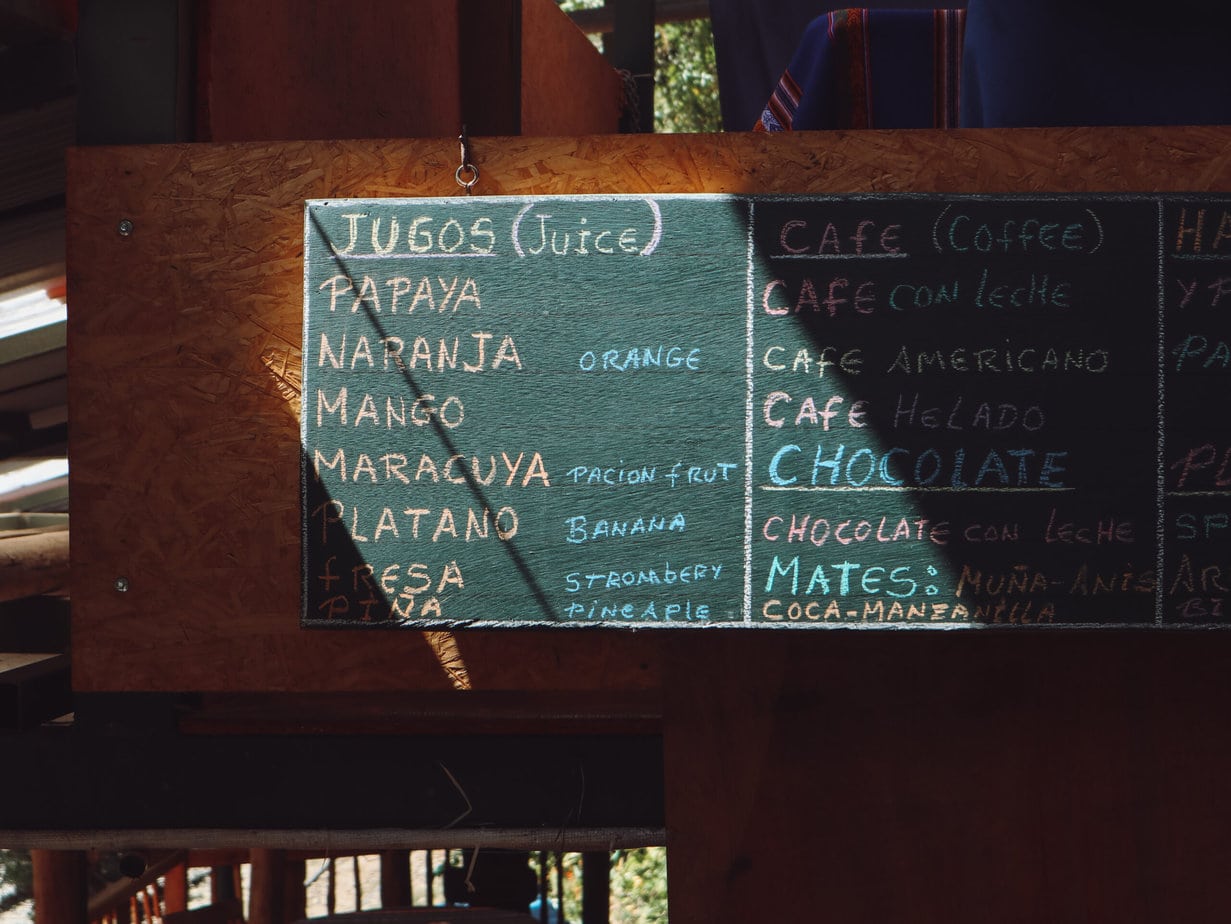 JUGOS (Juice)
PAPAYA
NARANJA ORANGE
MANGO
MARACUYA PACION fRUT
PLATANO BANANA
fRESA STROMbERY
PIÑA PINEAPLE
CAfE (Coffee)
CAFE CON LecHE
CAfe AMERiCANO
CAfe HeLADO
CHOCOLATE
CHOCOLATE CON LecHE
MATES: MUÑA-ANIS
COCA-MANZANILLA